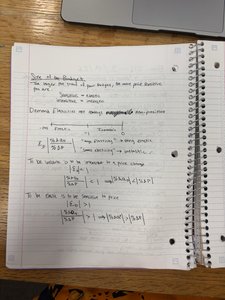 Size of the Budget:
- The larger the share of your budget, the more price sensitive
you are
Sensitive = elastic
insensitive = inelastic
Demand Elasticities are always negative
-∞ Elastic Inelastic 0
-1
%ΔQd
%ΔP
"very elasticity" → very elastic
→ inelastic
To be inelastic is to be insensitive to a price change
|Ed| < 1
%ΔQd
%ΔP
< 1 |%ΔQd| < |%ΔP|
To be elastic is to be sensitive to price
|ED| > 1
%ΔQd
%ΔP
> 1 |%ΔQd| > |%ΔP|